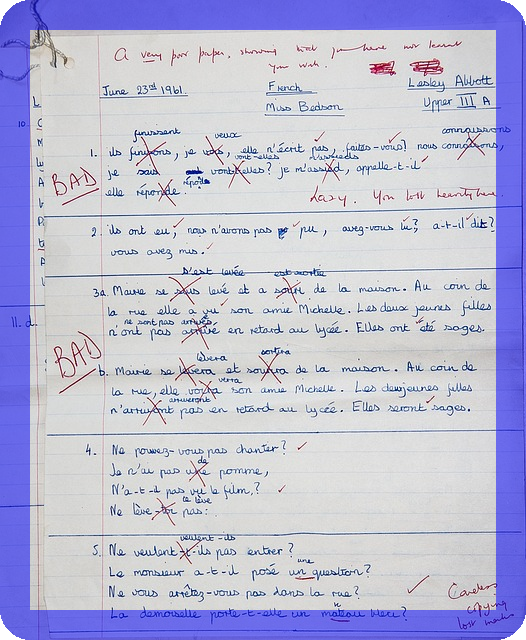 A very poor paper, showing that you have not learnt
your work.
June 23rd 1961. French Lesley Abbott
Miss Bedson Upper III A
finissent veux connaissons
1. ils finirons, je vous, elle n'écrit pas, faites-vous? nous connaisons,
vont-elles m'assieds
BAD je sais vont-elles? je m'assied, appelle-t-il
répond
elle réponde. Lazy. You lost heavily here.
2. ils ont eu, nous n'avons pas pu, avez-vous lu? a-t-il dit?
vous avez mis.
s'est levée est sortie
3a. Marie se sous levé et a sorti de la maison. Au coin de
la rue elle a vu son amie Michelle. Les deux jeunes filles
ne sont pas arrivés
n'ont pas arrivé en retard au lycée. Elles ont été sages.
II. d.
BAD
lèvera sortira
b. Marie se levera et sortira de la maison. Au coin de
verra
la rue, elle voira son amie Michelle. Les deux jeunes filles
arriveront
n'arriveront pas en retard au lycée. Elles seront sages.
4. Ne pouvez-vous pas chanter?
de
Je n'ai pas une pomme,
N'a-t-il pas vu le film?
te lève
Ne lève-toi pas.
veulent-ils
5. Ne veulent-t-ils pas entrer?
une
Le monsieur a-t-il posé un question?
Ne vous arrêtez-vous pas dans la rue?
La demoiselle porte-t-elle un mateau bleu?
Careless
copying
lost marks